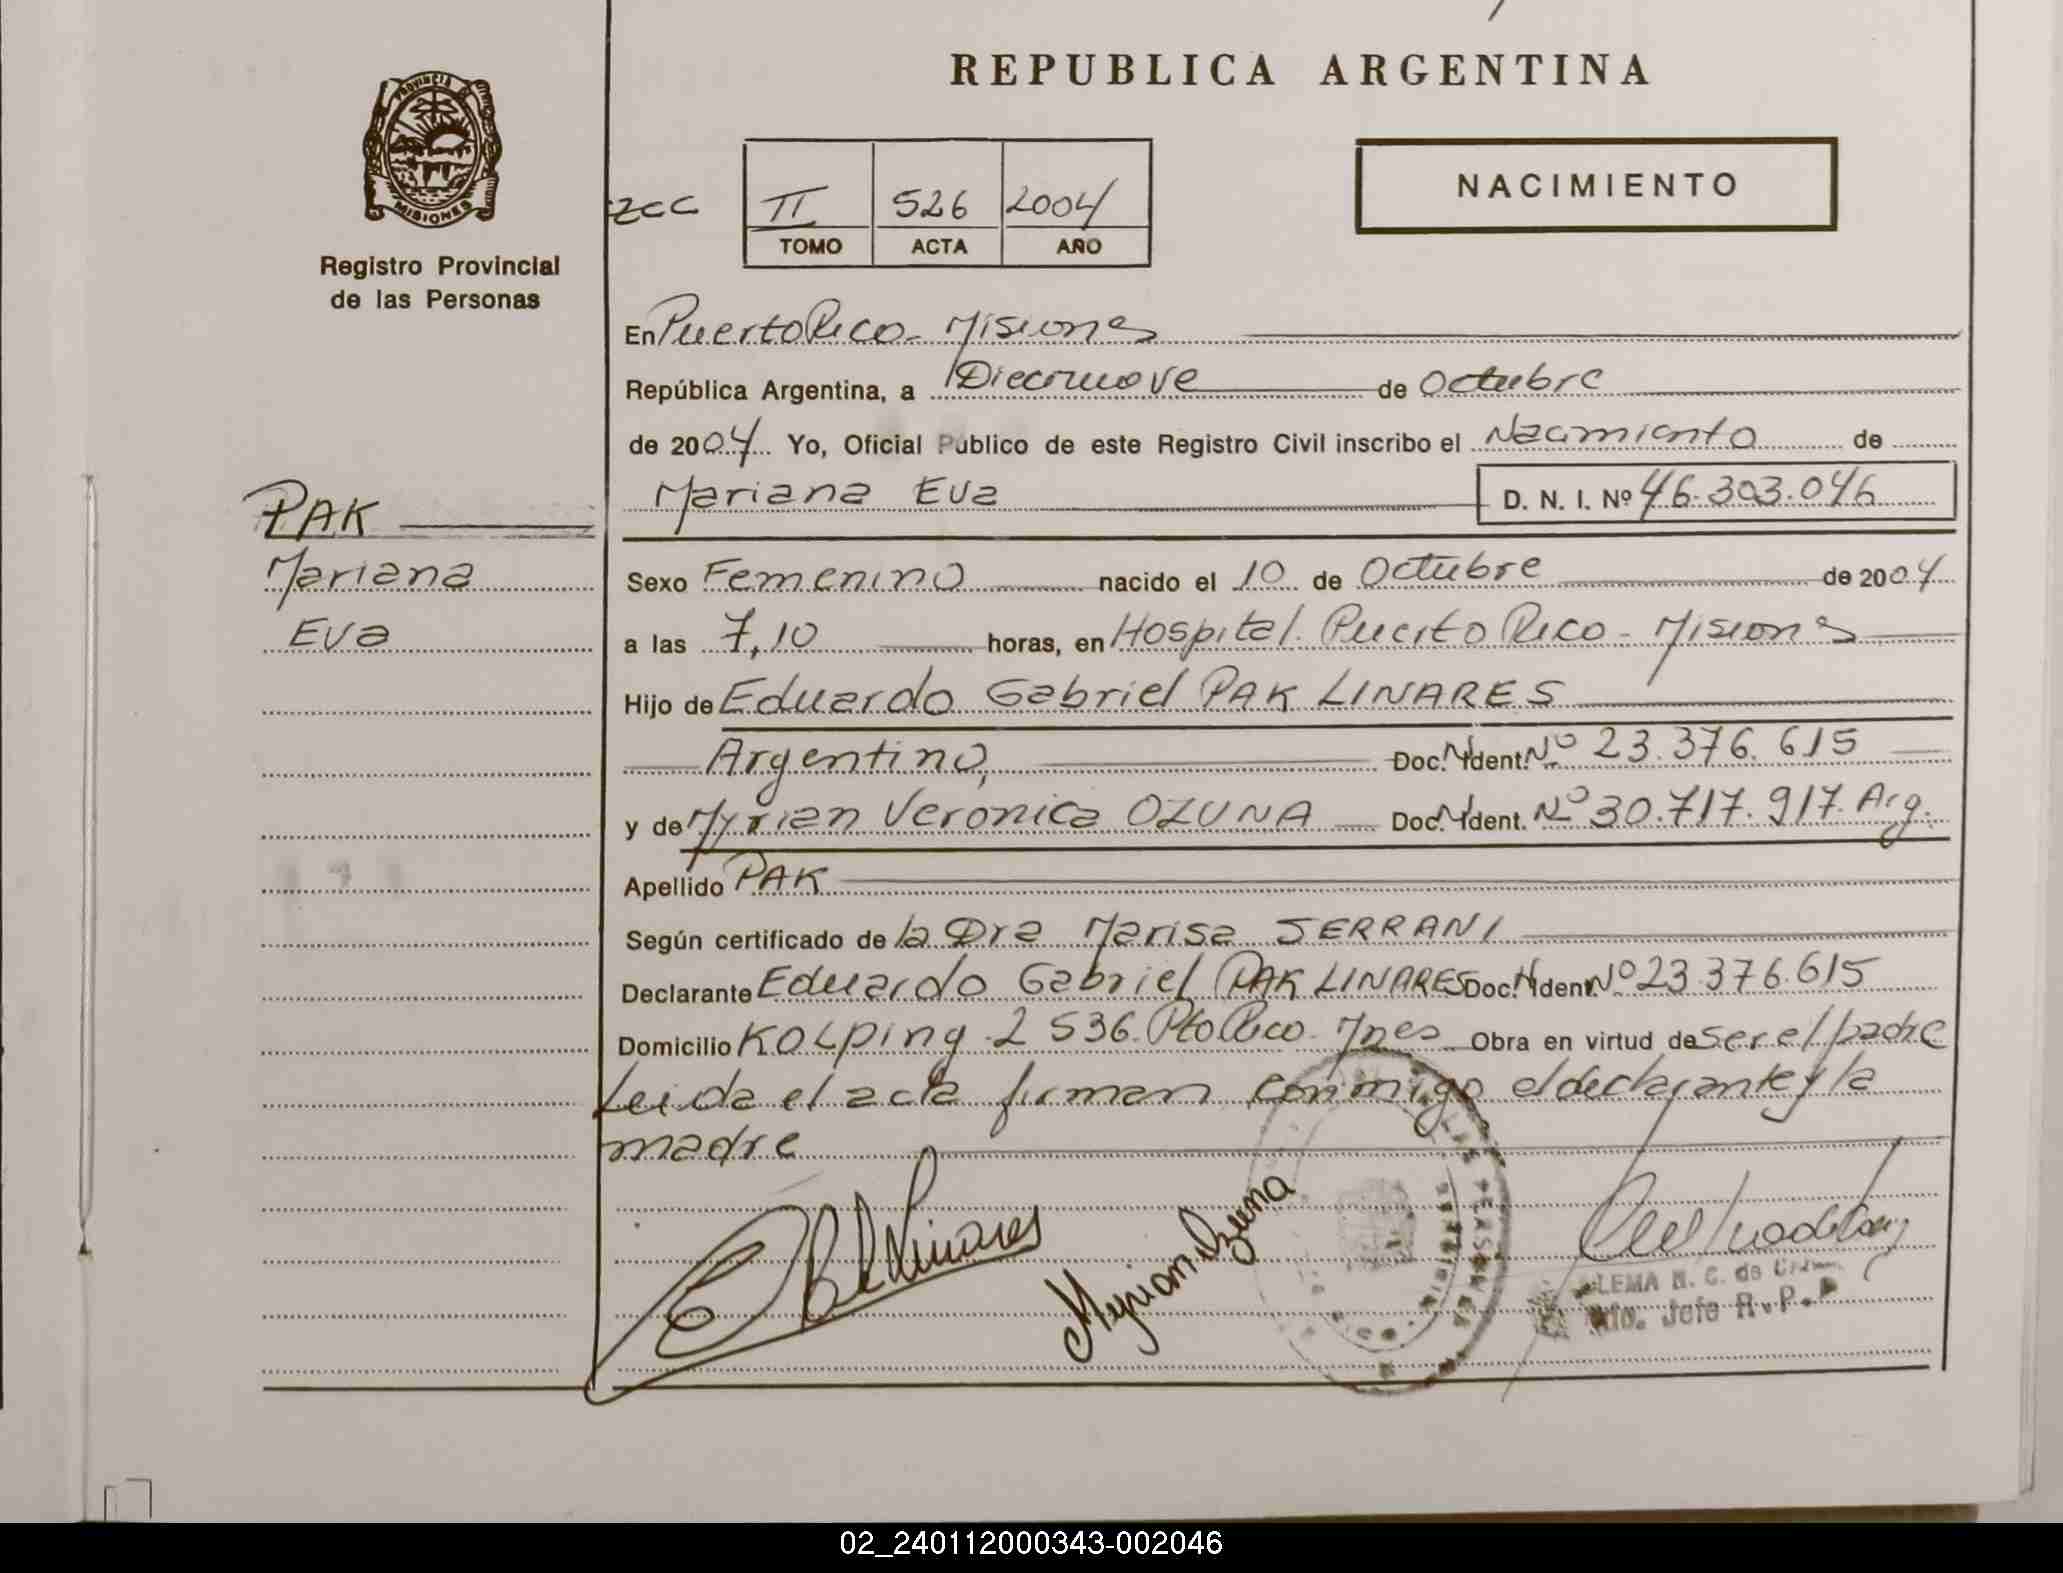 REPUBLICA ARGENTINA
PROVINCIA DE
MISIONES
Registro Provincial
de las Personas
zcc
II 526 2004
TOMO ACTA AÑO
NACIMIENTO
En Puerto Rico - Misiones
República Argentina, a Diecinueve de Octubre
de 2004 Yo, Oficial Público de este Registro Civil inscribo el Nacimiento de
Mariana Eva D. N. I. Nº 46.303.046
PAK
Mariana
Eva
Sexo Femenino nacido el 10 de Octubre de 2004
a las 7,10 horas, en Hospital Puerto Rico - Misiones
Hijo de Eduardo Gabriel PAK LINARES
Argentino, Doc. N. Ident. Nº 23.376.615
y de Myrian Verónica OZUNA Doc. N. Ident. Nº 30.717.917. Arg.
Apellido PAK
Según certificado de la Dra Marisa SERRANI
Declarante Eduardo Gabriel PAK LINARES Doc. N. Ident. Nº 23.376.615
Domicilio KOLping 2536. Pto Rico - Mnes Obra en virtud de ser el padre
Leída el acta firman conmigo el declarante y la
madre
Linares
Myrian Ozuna
LEMA N. C. de
Jefe R.P.P
02_240112000343-002046